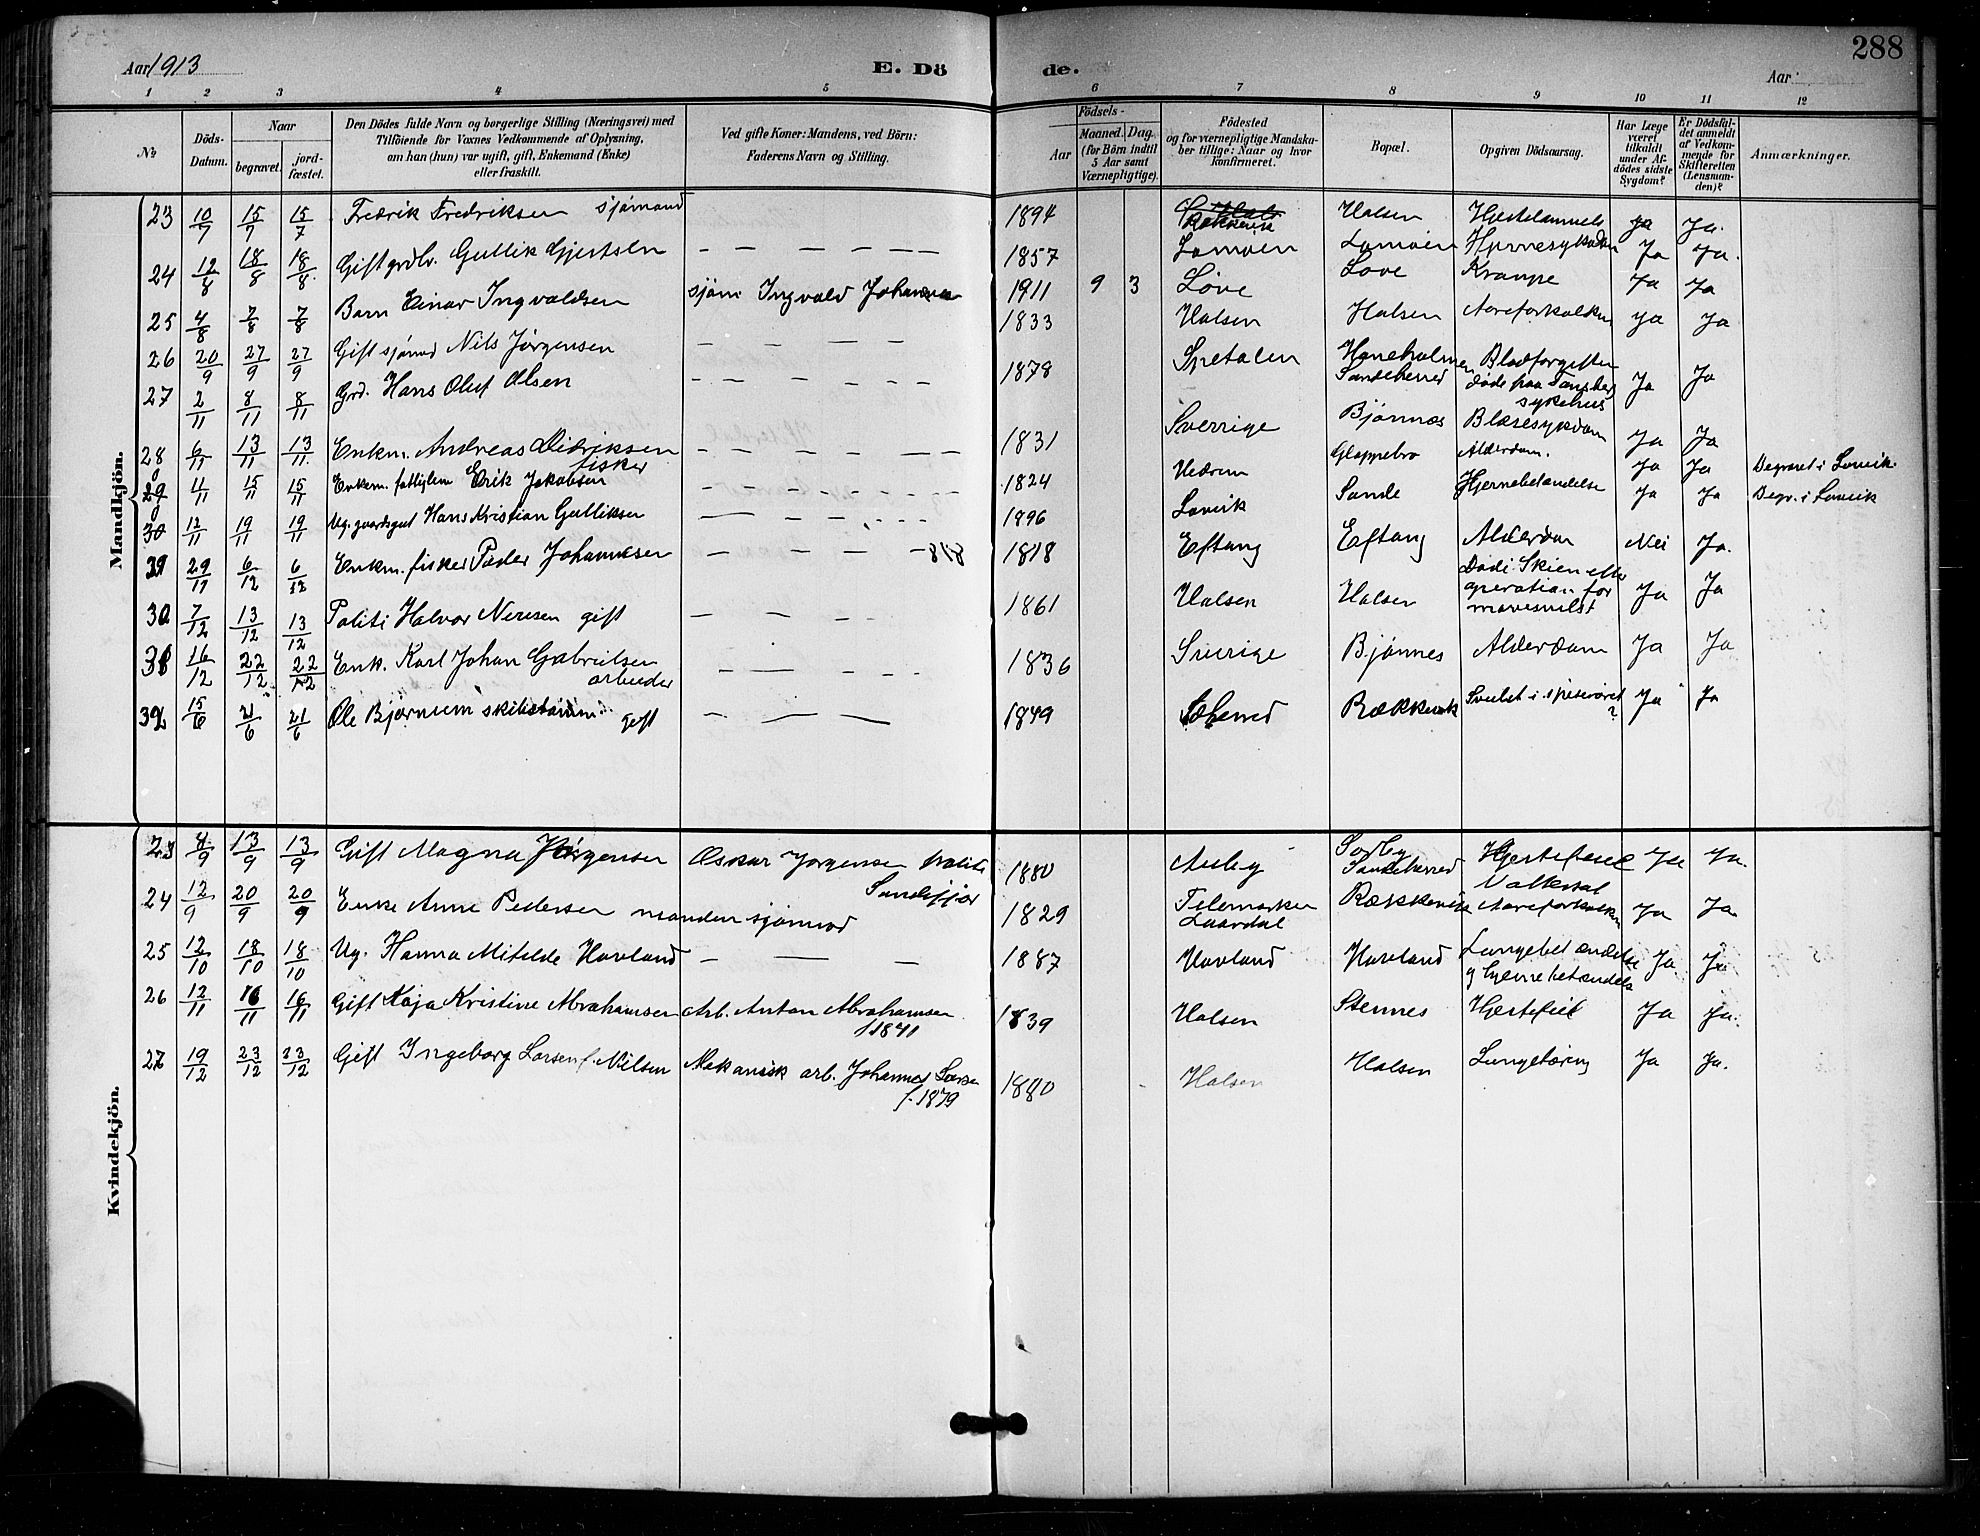 288
Aar 1913
E. Dö
de.
Aar
1 2 3 4 5 6 7 8 9 10 11 12
№
Döds-Datum.
Naar
begravet.
jord-fæstet.
Den Dödes fulde Navn og borgerlige Stilling (Næringsvei) med
Tilföiende for Voxnes Vedkommende af Oplysning,
om han (hun) var ugift, gift, Enkemand (Enke)
eller fraskilt.
Ved gifte Koner: Mandens, ved Börn:
Faderens Navn og Stilling.
Födsels-
Aar
Maaned. Dag
(for Börn indtil
5 Aar samt
Værnepligtige).
Födested
og for værnepligtige Mandska-
ber tillige: Naar og hvor
konfirmeret.
Bopæl.
Opgiven Dödsaarsag.
Har Læge
været
tilkaldt
under Af-
dödes sidste
Sygdom?
Er Dödsfal-
det anmeldt
af Vedkom-
mende for
Skifteretten
(Lensman-
den)?
Anmærkninger.
Mandkjön.
23 10/7 15/7 15/7 Fredrik Fredriksen sjömand 1894 Halsen Ja Ja.
24 12/8 18/8 18/8 Gift grdbr. Gullik Gjertsen — — — — — 1857 Lamöen Lamöen Ja Ja.
25 4/8 7/8 7/8 Barn Einar Ingvaldsen sjöm Ingvald Johannesen 1911 9 3 Löve Love Krampe Ja Ja
26 20/9 27/9 27/9 Gift sjömd Nils Jörgensen — — — — — 1833 Halsen Halsen Aareforkalkn Ja Ja
27 2/11 8/11 8/11 Grd. Hans Oluf Olsen — — — — — 1878 Spetalen Haneholmen Sandeherred Blodforgiften döde paa Tønsberg sykehus Ja Ja
28 6/11 13/11 13/11 Enkm. Andreas Didriksen fisker — — — — — 1831 Sverrige Bjönnes Blæresykdom Ja Ja
29 4/11 15/11 15/11 Enkem. fattiglem Erik Jakobsen — — — — — 1824 Hedrum Gloppebro Alderdom. Ja Ja Begravet i Larvik.
30 12/11 19/11 19/11 Ug. gaardsgut Hans Kristian Gulliksen — — — — 1896 Larvik Sande Hjernebetændelse Ja Ja Begr. i Larvik
31 29/11 6/12 6/12 Enkm. fisker Peder Johannesen — — — — 818 1818 Eftang Eftang Alderdom Nei Ja.
30 7/12 13/12 13/12 Politi Halvor Neresen gift — — — — 1861 Halsen Halsen Död i Skien efter operation for mavesvulst Ja Ja
31 16/12 22/12 22/12 Enk. Karl Johan Gabrielsen arbeider — — — — 1836 Sverige Bjönnes Alderdom Ja Ja
32 15/6 21/6 21/6 Ole Bjørnum gift — — — 1849 Rækkevik Svulst i spiserøret ? Ja Ja
Kvindekjön.
23 4/9 13/9 13/9 Gift Magna Jörgensen Oskar Jörgensen politi Sandefjor 1880 Aulby Sörby Sandeherred Hjertefeil Ja Ja.
24 12/9 20/9 20/9 Enke Anne Pedersen manden sjömnd 1829 Telemarken Laardal Rækkevik Aareforkalkn Ja Ja
25 12/10 18/10 18/10 Ug. Hanna Mitelde Havland — — — 1887 Havland Havland Lungebetændelse og hjernebetændels Ja Ja
26 12/11 16/11 16/11 Gift Kaja Kristine Abrahamsen Arb. Anton Abrahamsen f 1841 1839 Halsen Stennes Hjertefeil Ja Ja.
27 19/12 23/12 23/12 Gift Ingeborg Larsen f. Nilsen Mekanisk arb. Johannes Larsen f. 1879 1880 Halsen Halsen Lungetæring Ja Ja.